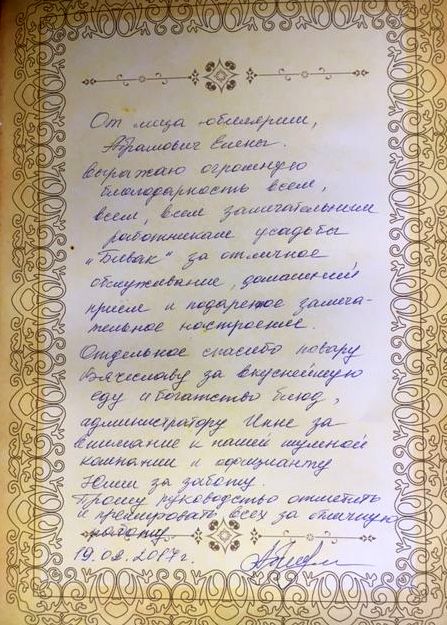 От лица юбилярши,
Абрамович Елены.
выражаю огромную
благодарность всем,
всем, всем замечательным
работникам усадьбы
"Бивак" за отличное
обслуживание, домашний
приём и подаренное замеча-
тельное настроение.
Отдельное спасибо повару
Вячеславу за вкуснейшую
еду и богатство блюд,
администратору Инне за
внимание к нашей шумной
компании и официанту
Юлии за заботу.
Прошу руководство отметить
и премировать всех за отличную
работу
19.02.2017г.